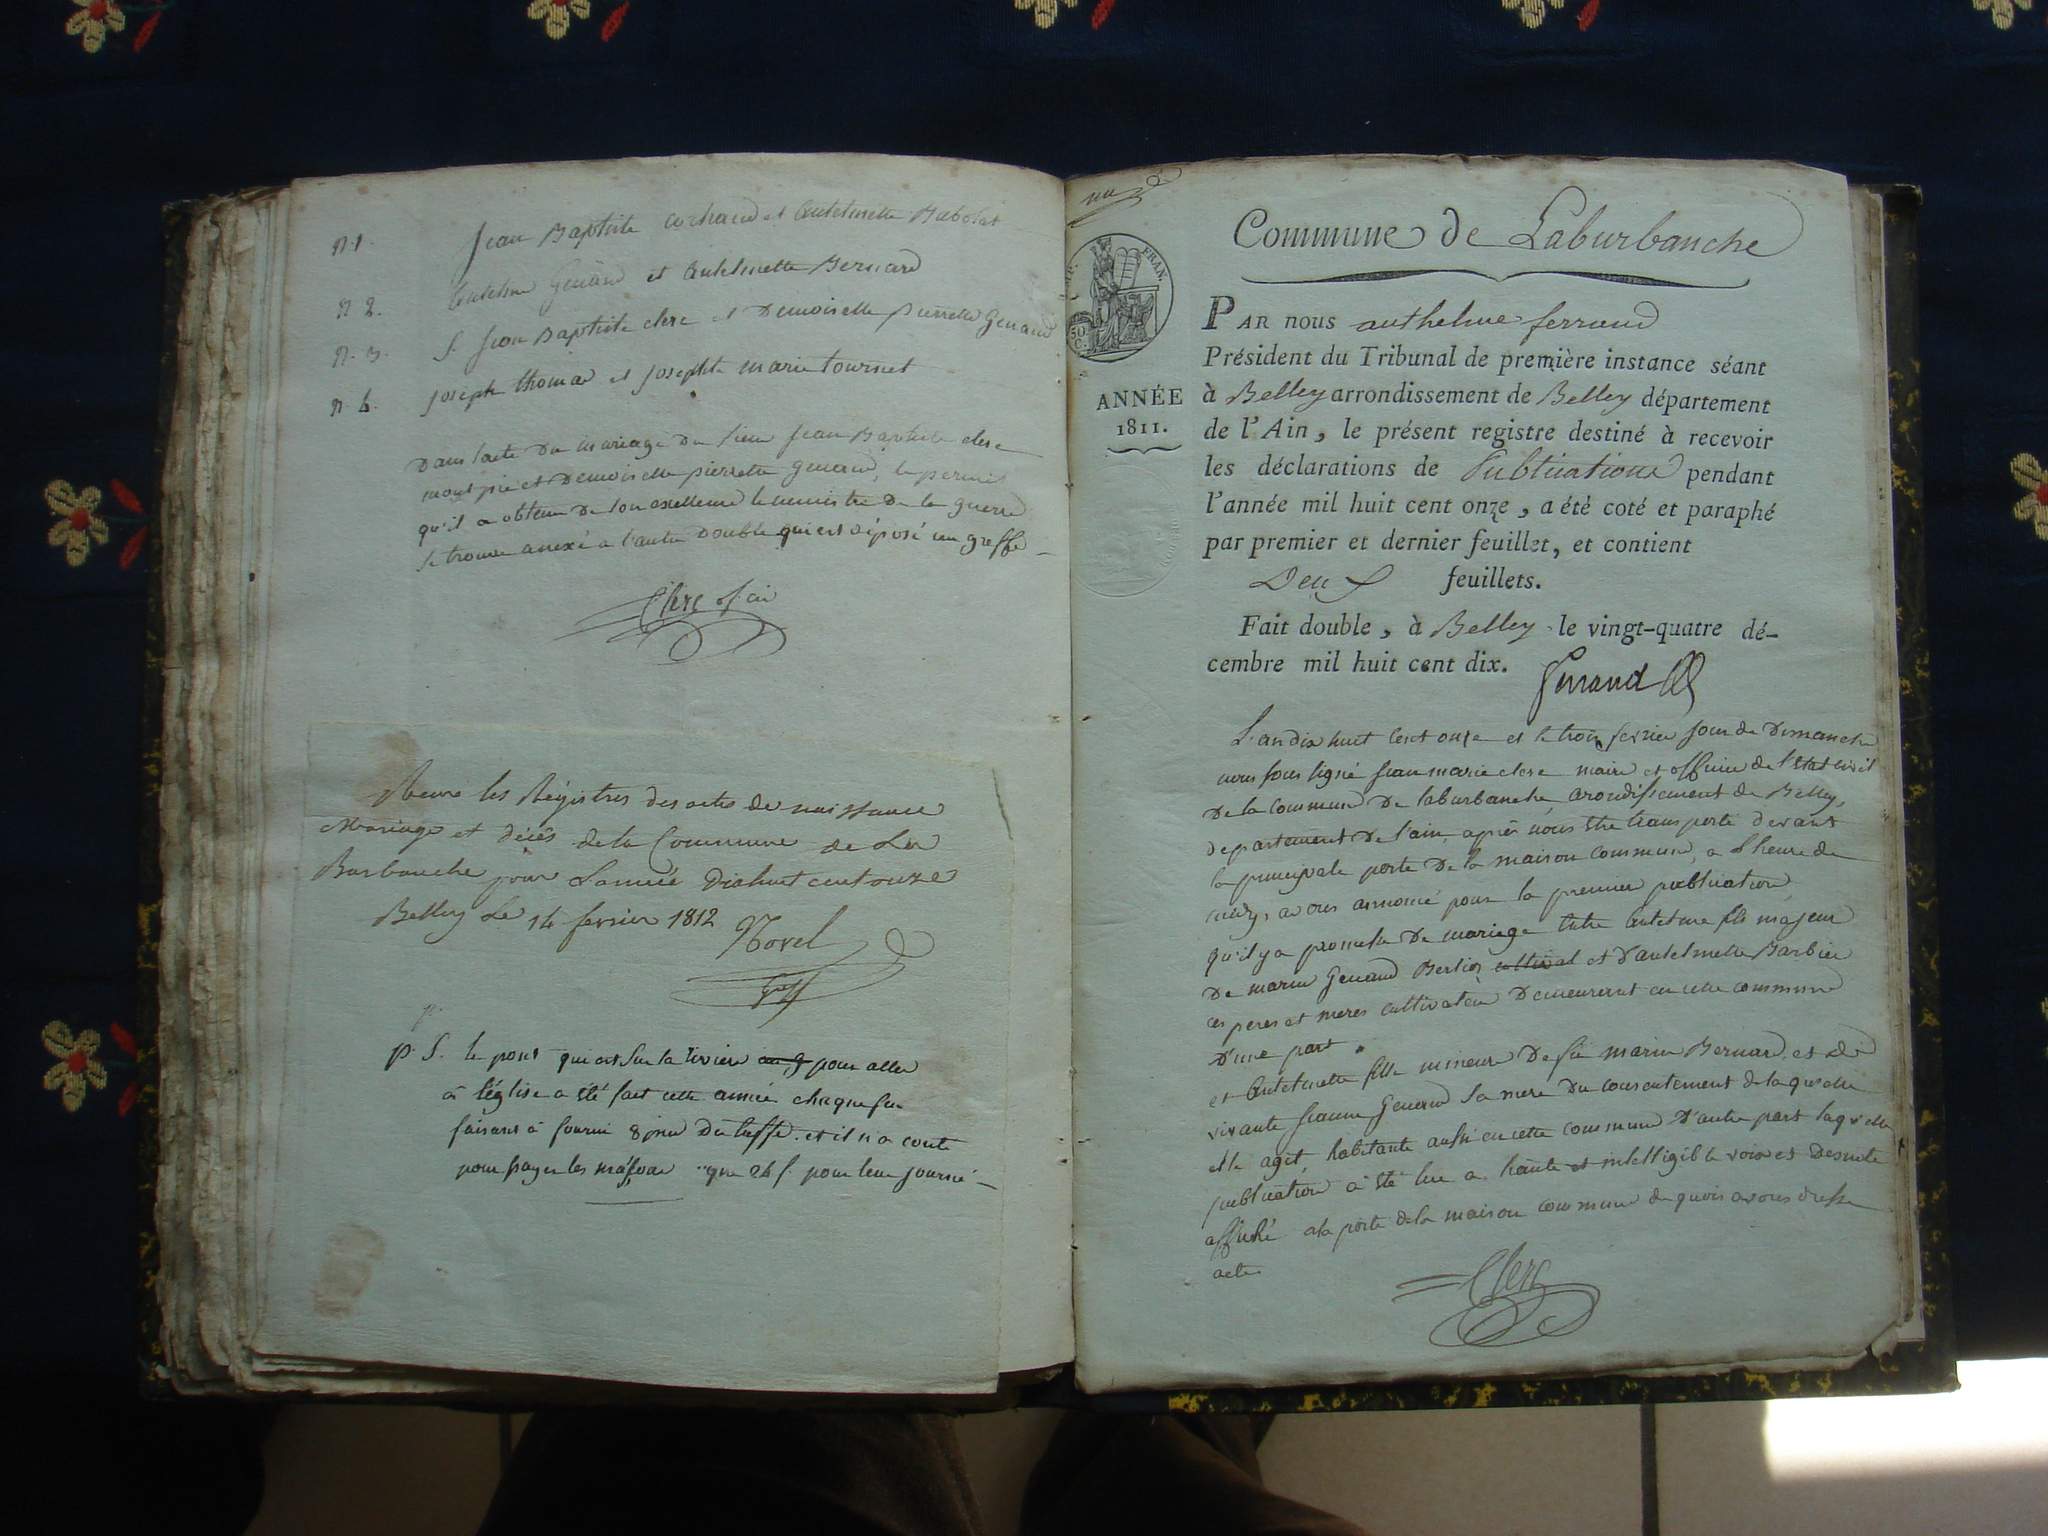 N. 1. Jean Baptiste cochaud et Antelmette Babolat
N. 2. Antelme Genaud et Antelmette Bernard
N. 3. S. Jean Baptiste clerc et Demoiselle pierrette Genaud
N. 4. joseph thomas et josephte marie tournet
Dans l'acte du mariage du sieur Jean Baptiste clerc
et Demoiselle pierrette Genaud, le permis
qu'il a obtenu de son excellence le ministre de la guerre
se trouve anexé a l'autre double qui est déposé au greffe
Clerc
Reçu les Régistres des actes de naissance
Mariage et décès de la Commune de La
Burbanche pour L'année dixhuit cent onze
Belley Le 14 fevrier 1812
p. S. le pont qui est sur la riviere pour aller
à l'église a été fait cette année chaque feu
faisant à fourni 8 du tuffe. et il n'a couté
pour payer les que 24 f. pour leur journé
Commune de Laburbanche
RÉP. FRAN.
50 C.
ANNÉE
1811.
PAR nous anthelme ferrand
Président du Tribunal de première instance séant
à Belley arrondissement de Belley département
de l'Ain, le présent registre destiné à recevoir
les déclarations de Publications pendant
l'année mil huit cent onze, a été coté et paraphé
par premier et dernier feuillet, et contient
Deux feuillets.
Fait double, à Belley le vingt-quatre dé-
cembre mil huit cent dix.
Ferrand
L'an dix huit cent onze et le trois fevrier jour de Dimanche
nous sous signé jean marie clerc maire et officier de l'état civil
De la commune De laburbanche arondissement de Belley,
departement De l'ain, après nous être transporté devant
la principale porte De la maison commune, a l'heure de
midy, avons annoncé pour la premier publication
qu'il y a promesse De mariage entre Antelme fils majeur
De marin Genaud Berlioz cultivat et d'antelmette Barbier
ces peres et meres cultivateur Demeurerant en cette commune
D'une part
et Antelmette fille mineure De feu marin Bernard, et de
vivante jeanne Genaud sa mere du consentement de laquelle
elle agit, habitante aussi en cette commune D'autre part laquelle
publication a été lue a haute et intelligible voix et Desuite
affiché a la porte de la maison commune de quoi avons dressé
acte
Clerc